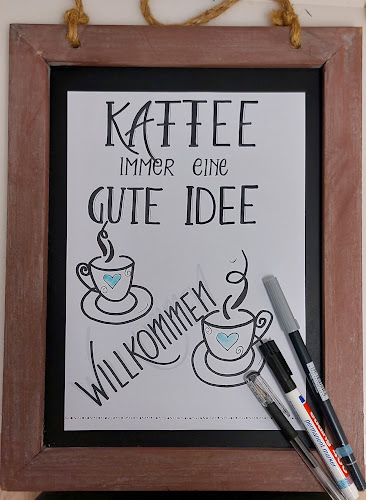 KAFFEE
IMMER EINE
GUTE IDEE
WILLKOMMEN